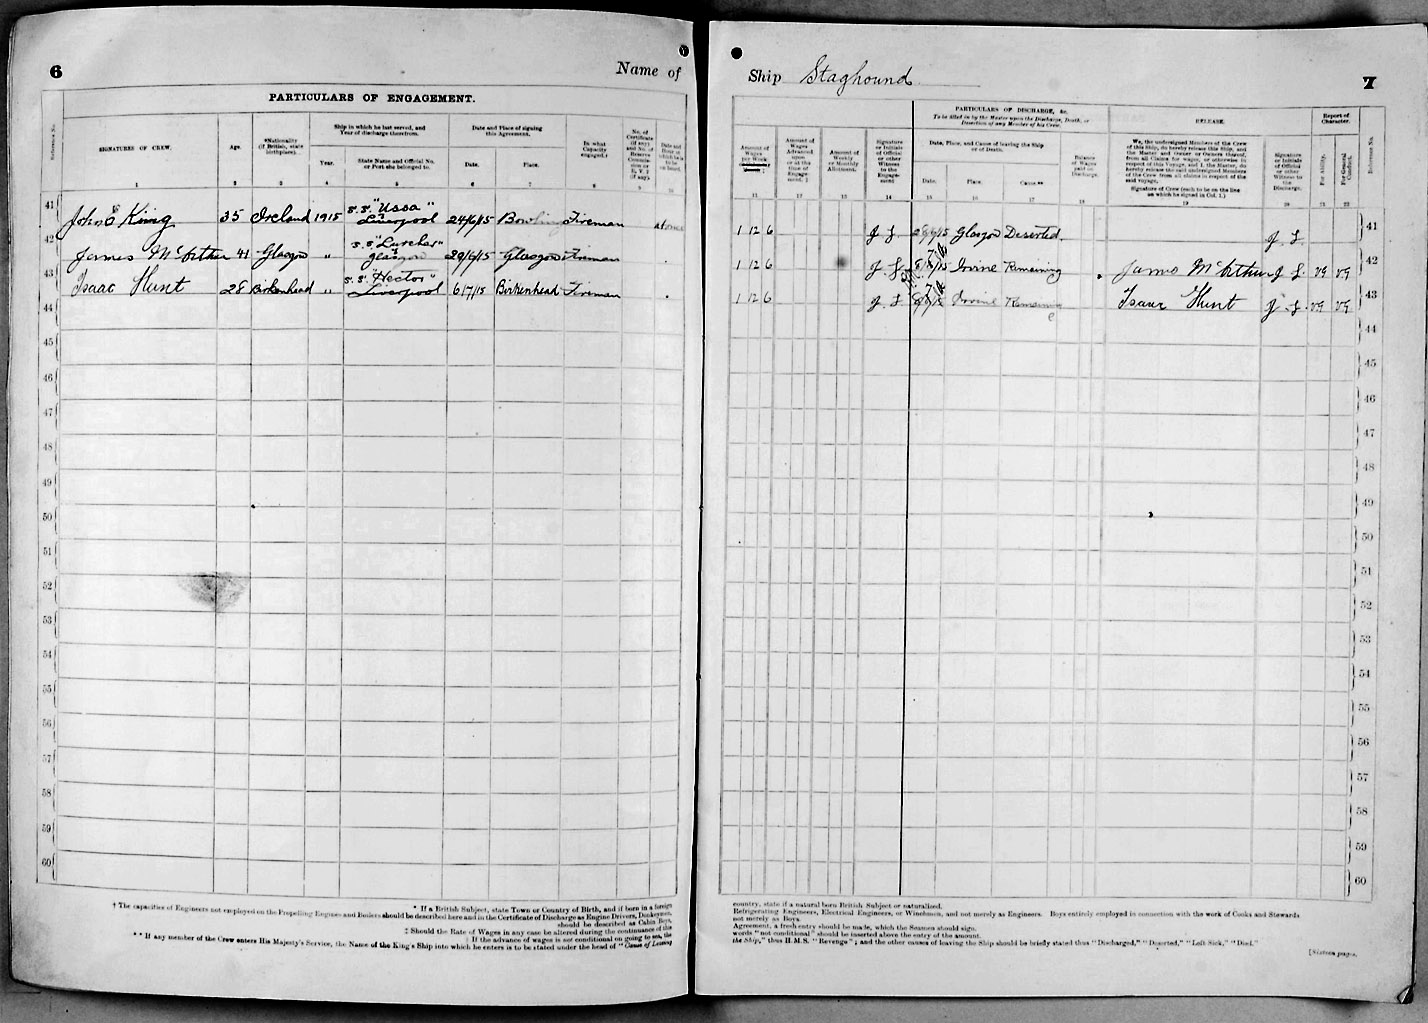 6
Name of
PARTICULARS OF ENGAGEMENT.
Reference No.
SIGNATURES OF CREW.
Age.
*Nationality
(if British, state
birthplace).
Ship in which he last served, and
Year of discharge therefrom.
Year.
State Name and Official No.
or Port she belonged to.
Date and Place of signing
this Agreement.
Date.
Place.
In what
Capacity
engaged.†
No. of
Certificate
(if any)
and No. of
Reserve
Commis-
sion or
R.V.2
(if any).
Date and
Hour at
which he is
to be
on board.
1 2 3 4 5 6 7 8 9 10
41 John King 35 Ireland 1915 s.s. "Ussa" Liverpool 24/6/15 Bowling Fireman at once
42 James McArthur 41 Glasgow " s.s. "Lurcher" Glasgow 29/6/15 Glasgow Fireman
43 Isaac Hunt 28 Birkenhead " s.s. "Hector" Liverpool 6/7/15 Birkenhead Fireman
44
45
46
47
48
49
50
51
52
53
54
55
56
57
58
59
60
* If a British Subject, state Town or Country of Birth, and if born in a foreign
† The capacities of Engineers not employed on the Propelling Engines and Boilers should be described here and in the Certificate of Discharge as Engine Drivers, Donkeymen,
should be described as Cabin Boys,
‡ Should the Rate of Wages in any case be altered during the continuance of this
If the advance of wages is not conditional on going to sea, the
** If any member of the Crew enters His Majesty's Service, the Name of the King's Ship into which he enters is to be stated under the head of "Cause of Leaving
Ship Staghound
7
Amount of
Wages
per Week
Amount of
Wages
Advanced
upon
or at the
time of
Engage-
ment. ‡
Amount of
Weekly
or Monthly
Allotment.
Signature
or Initials
of Official
or other
Witness
to the
Engage-
ment
PARTICULARS OF DISCHARGE, &c.
To be filled in by the Master upon the Discharge, Death, or
Desertion of any Member of his Crew.
Date, Place, and Cause of leaving the Ship
or of Death.
Date.
Place.
Cause.**
Balance
of
Wages
paid on
Discharge.
RELEASE.
We, the undersigned Members of the Crew
of this Ship, do hereby release this Ship, and
the Master and Owner or Owners thereof,
from all Claims for wages, or otherwise in
respect of this Voyage, and I, the Master, do
hereby release the said undersigned Members
of the Crew from all claims in respect of the
said voyage.
Signature of Crew (each to be on the line
on which he signed in Col. 1.)
Signature
or Initials
of Official
or other
Witness
to the
Discharge.
Report of
Character.
For Ability.
For General
Conduct.
Reference No.
11 12 13 14 15 16 17 18 19 20 21 22
1 12 6 J. S. Glasgow Deserted. J. S. 41
1 12 6 J. S. Irvine Remaining James McArthur J. S. VG VG 42
1 12 6 J. S. Irvine Remaining Isaac Hunt J. S. VG VG 43
44
45
46
47
48
49
50
51
52
53
54
55
56
57
58
59
60
country, state if a natural born British Subject or naturalized.
Refrigerating Engineers, Electrical Engineers, or Winchmen, and not merely as Engineers. Boys entirely employed in connection with the work of Cooks and Stewards
not merely as Boys.
Agreement, a fresh entry should be made, which the Seamen should sign.
words "not conditional" should be inserted above the entry of the amount.
the Ship," thus H.M.S. "Revenge"; and the other causes of leaving the Ship should be briefly stated thus "Discharged," "Deserted," "Left Sick," "Died."
[Sixteen pages.